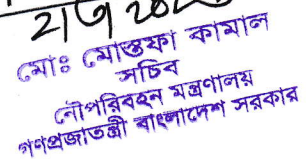 মোঃ মোস্তফা কামাল
সচিব
নৌপরিবহন মন্ত্রণালয়
গণপ্রজাতন্ত্রী বাংলাদেশ সরকার